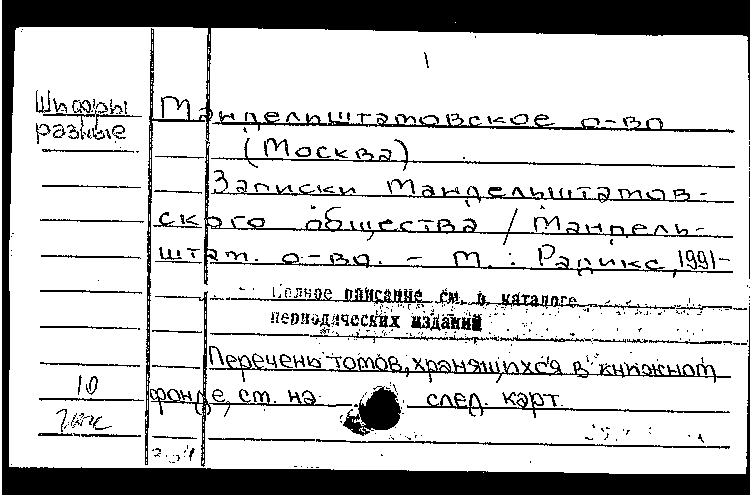 1
Шифры
разные
Мандельштамовское о-во
(Москва)
Записки Мандельштамов-
ского общества / Мандель-
штам. о-во. - М. : Радикс, 1991-
Полное описание см. в каталоге
периодических изданий
Перечень томов, хранящихся в книжном
фонде, см. на след. карт.
10